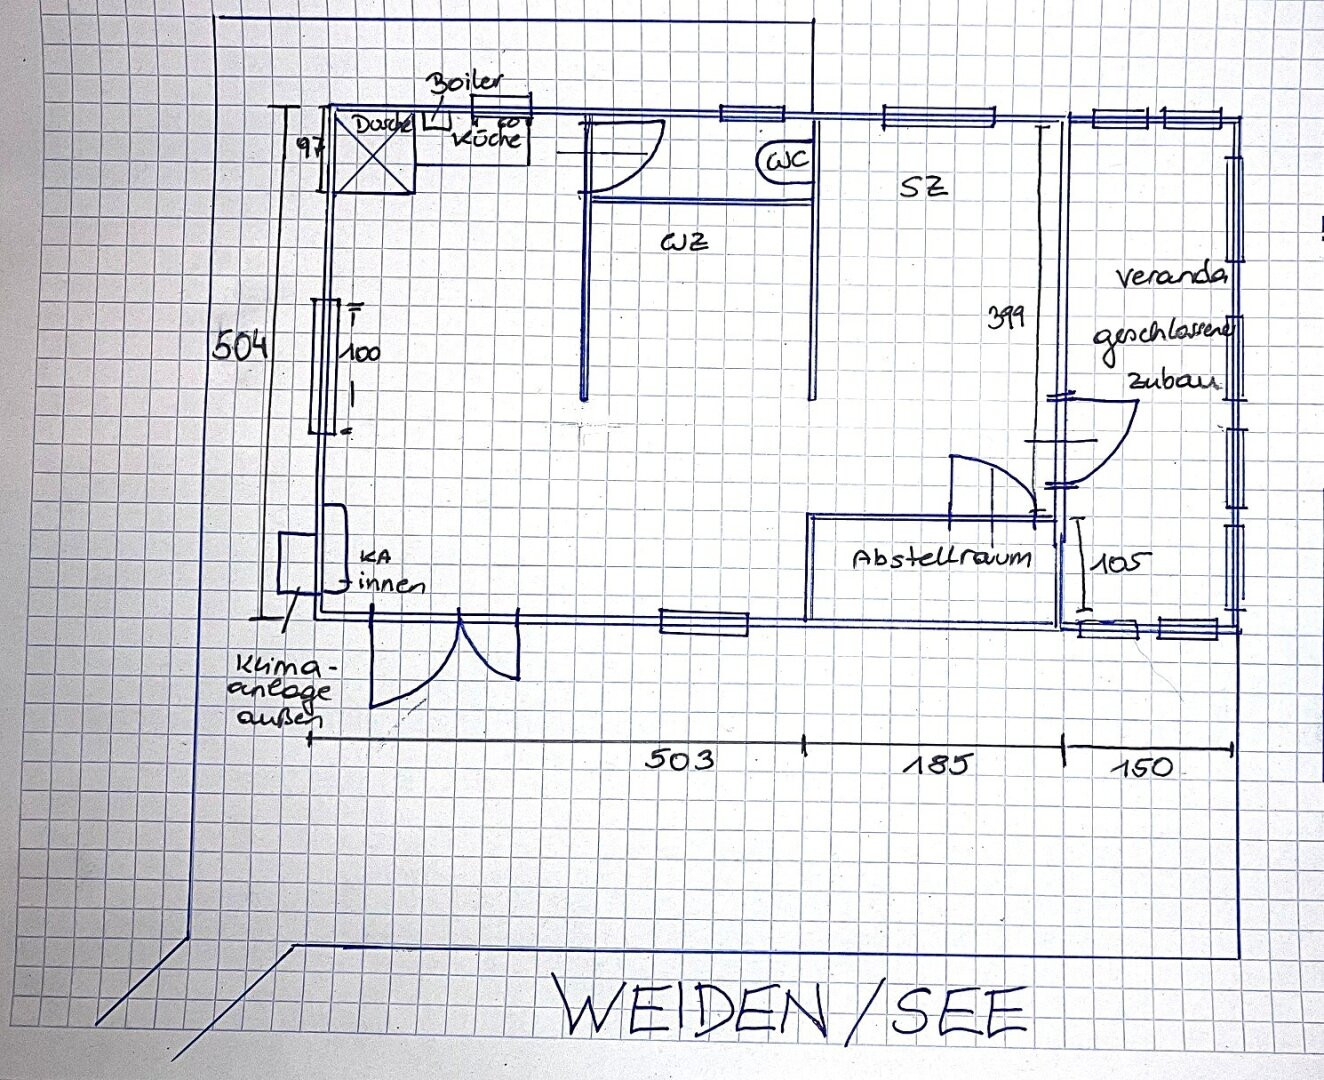 Boiler
Dusche
Küche
60
97
WC
SZ
WZ
Veranda
geschlossener
Zubau
399
504
100
KA
innen
Abstellraum
105
Klima-
anlage
außen
503
185
150
WEIDEN/SEE